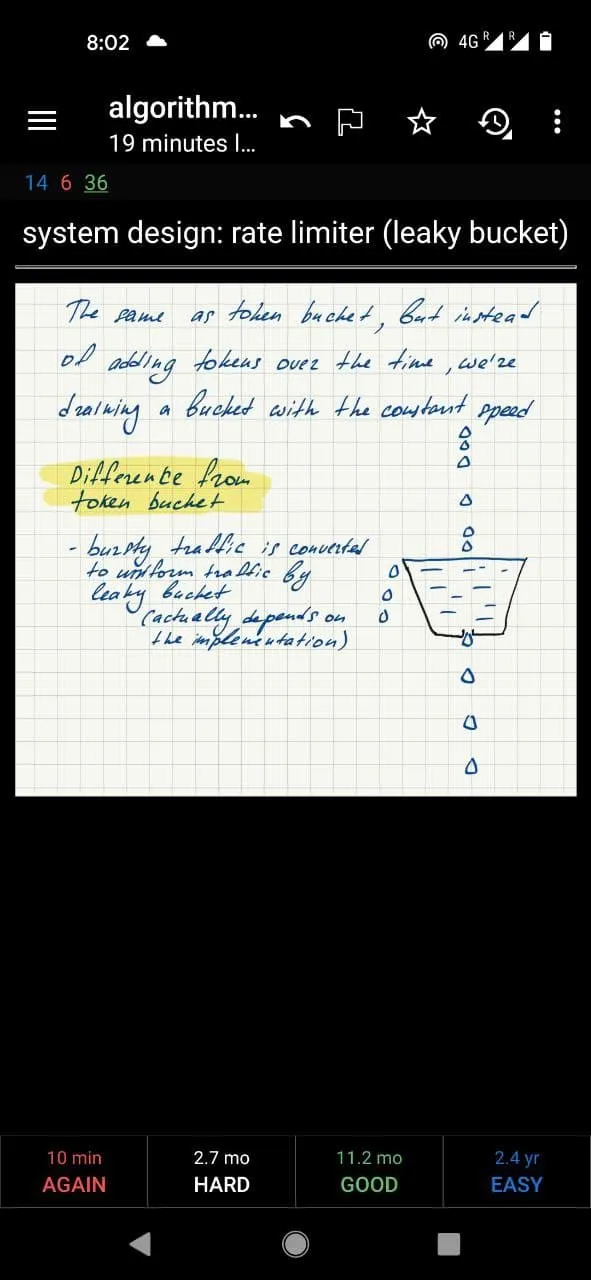 8:02
4G R R
algorithm...
19 minutes l...
14 6 36
system design: rate limiter (leaky bucket)
The same as token bucket, but instead
of adding tokens over the time, we're
draining a bucket with the constant speed
Difference from
token bucket
- bursty traffic is converted
to uniform traffic by
leaky bucket
(actually depends on
the implementation)
10 min 2.7 mo 11.2 mo 2.4 yr
AGAIN HARD GOOD EASY